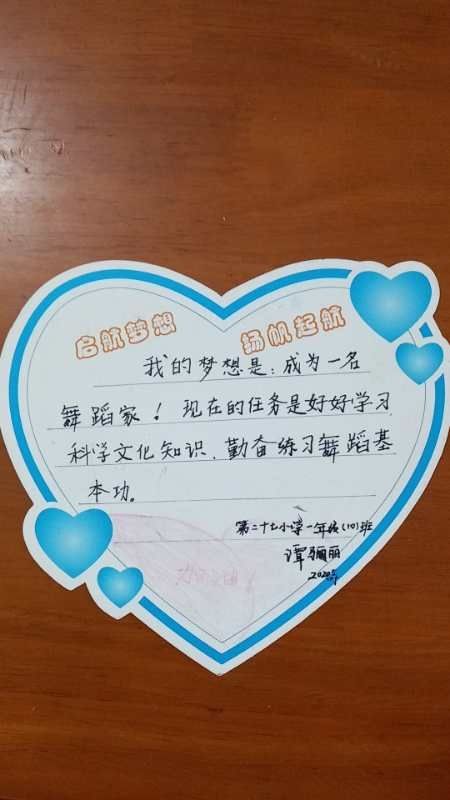 启航梦想 扬帆起航
我的梦想是:成为一名
舞蹈家！现在的任务是好好学习
科学文化知识、勤奋练习舞蹈基
本功。
第二十七小学一年级(10)班
谭骊丽
2020年